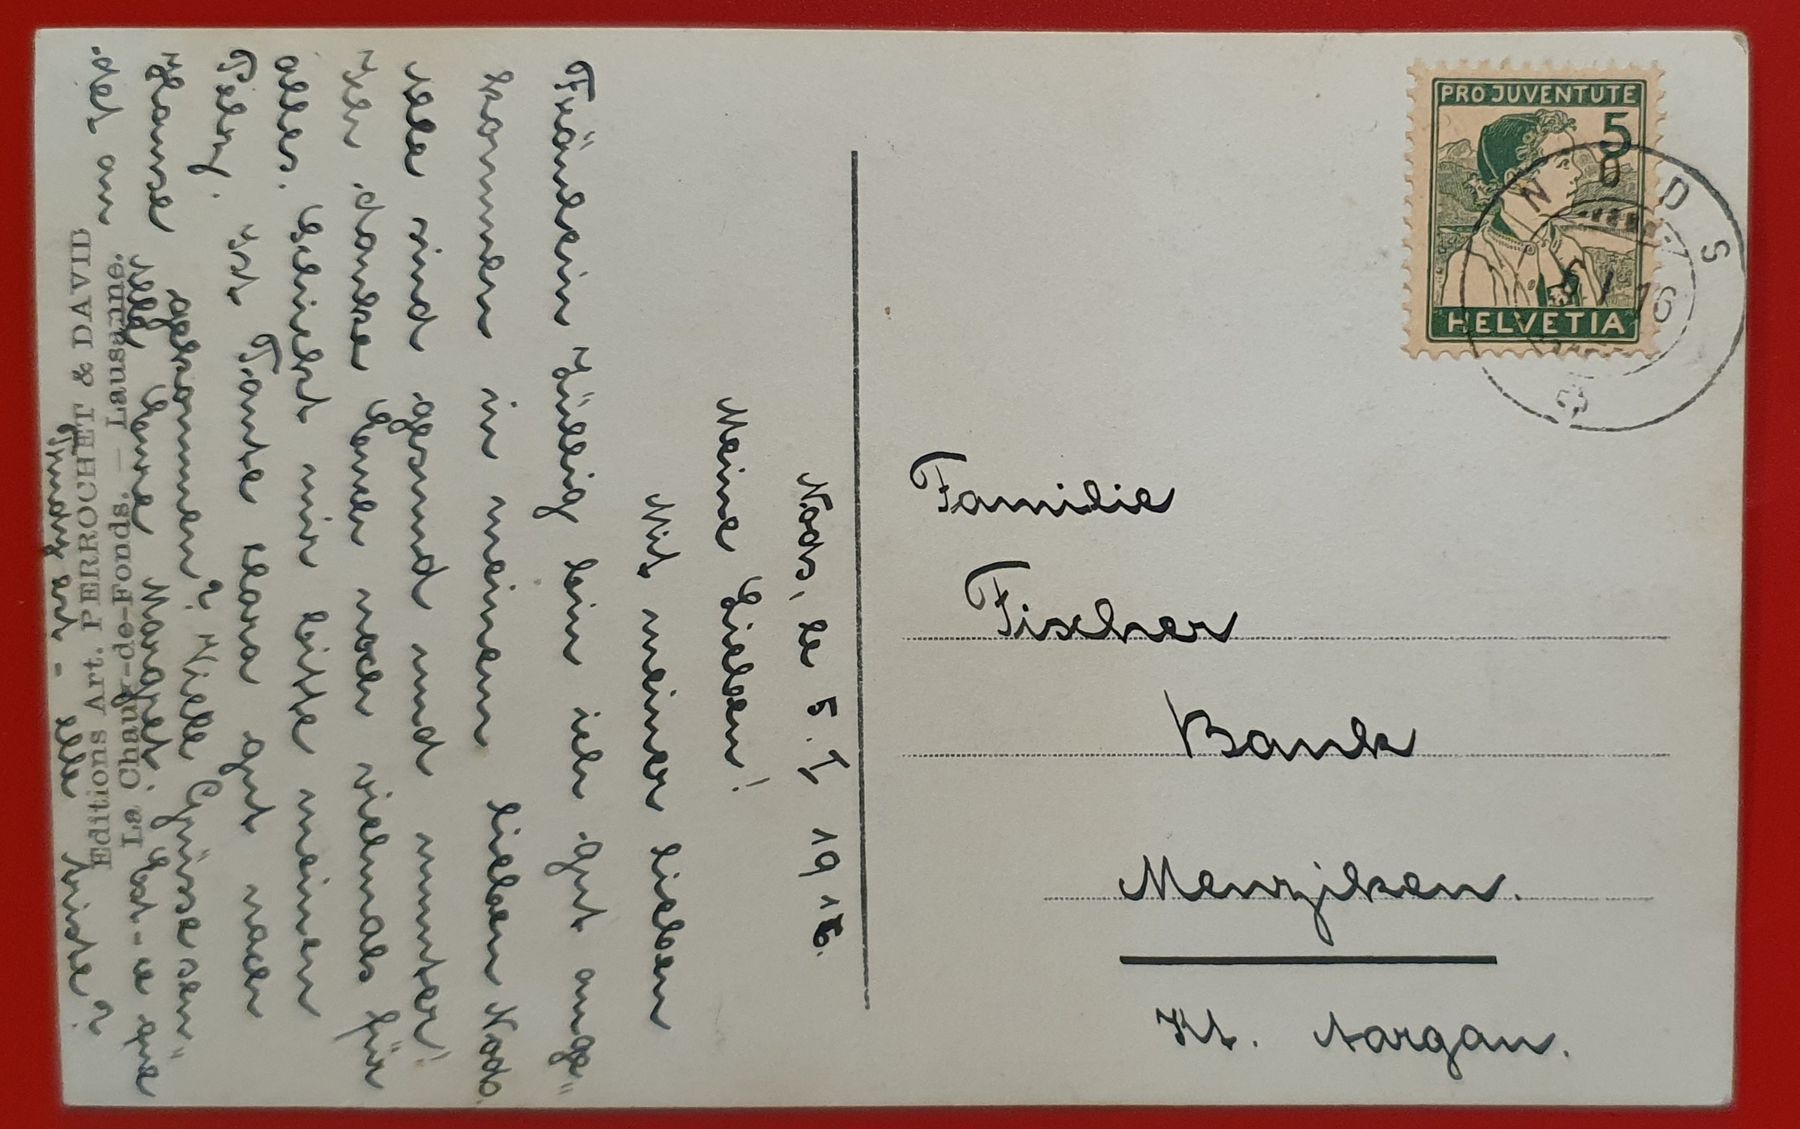 PRO JUVENTUTE
5
HELVETIA
NODS
16
Familie
Fischer
Bank
Menziken.
Kt. Aargau.
Nods, le 5. I, 1916.
Meine Lieben!
Mit meiner lieben
Fräulein Züllig bin ich gut ange"
kommen in meinem lieben Nods.
Alle sind gesund und munter!
Ich danke Euch noch vielmals für
alles. Schickt mir bitte meinen
Pelz. Ist Tante Clara gut nach
Hause gekommen? Viele Grüsse sen"
det an alle Eure Margrit. Est-ce que
Emmy est - elle triste?
Editions Art. PERROCHET & DAVID
La Chaux-de-Fonds. — Lausanne.